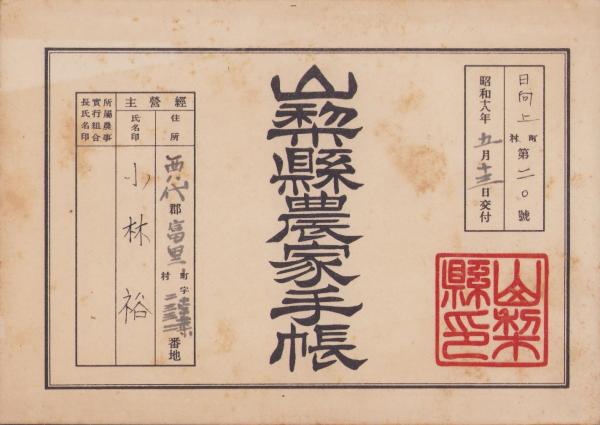 日向上
町
村
第二〇號
昭和十八年五月十三日交付
山梨縣農家手帳
山梨
縣印
經營主
住所
西八代郡富里
町
村
字
二三五二番地
氏名印
小林裕
所屬農事
實行組合
長氏名印